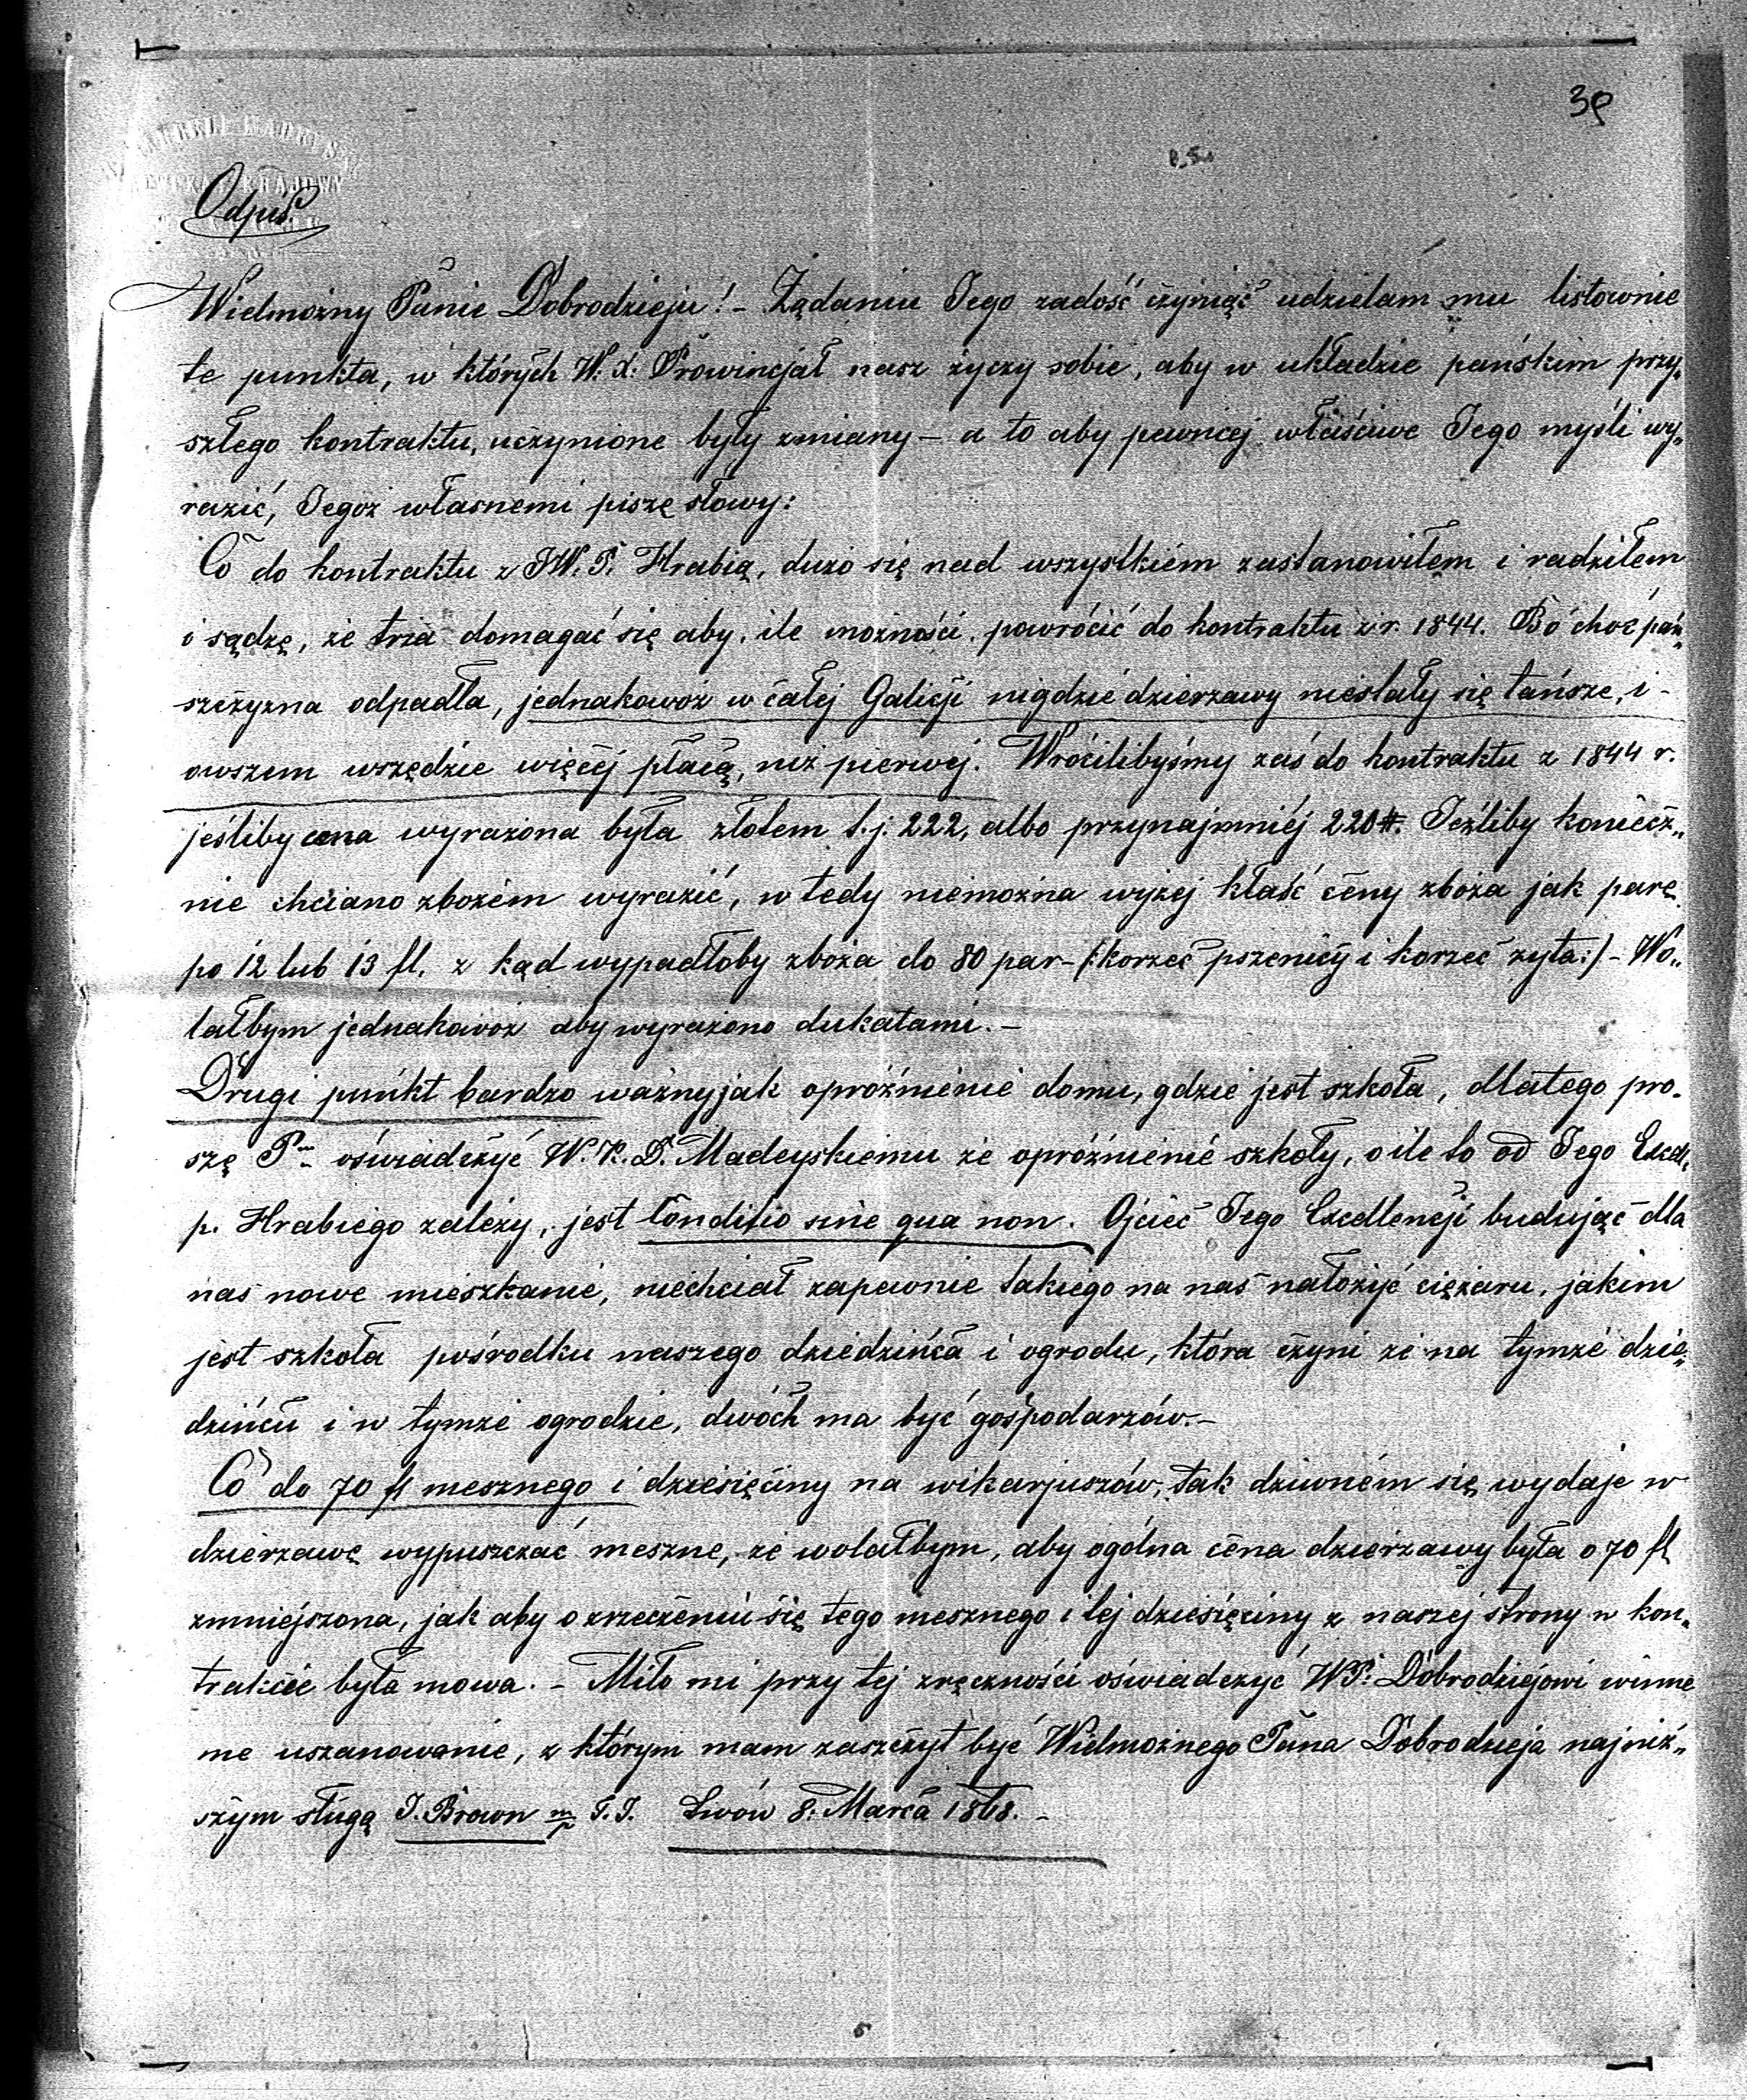 39
Odpis.
Wielmożny Panie Dobrodzieju! – Żądaniu Jego zadość czyniąc udzielam mu listownie
te punkta, w których W. X. Prowincjał nasz życzy sobie, aby w układzie pańskim przy„
szłego kontraktu, uczynione były zmiany – a to aby pewniej właściwe Jego myśli wy„
razić, Jegoż własnemi piszę słowy:
Co do kontraktu z JW. P. Hrabią, dużo się nad wszystkiém zastanowiłem i radziłem
i sądzę, że trza domagać się aby, ile możności, powrócić do kontraktu z r. 1844. Bo choć pań„
szczyzna odpadła, jednakowoż w całej Galicji nigdzie dzierzawy niestały się tańsze, i –
owszem wszędzie więcéj płacą, niż pierwéj. Wrócilibyśmy zaś do kontraktu z 1844 r.
jeśliby cena wyrażona była złotem t. j. 222, albo przynajmniéj 220 #. Jeźliby koniecz„
nie chciano zbożem wyrazić, w tedy niemożna wyżej kłaść ceny zboża jak parę
po 12 lub 13 fl. z kąd wypadłoby zboża do 80 par – (: korzec pszenicy i korzec żyta :) – Wo„
lałbym jednakowoż aby wyrażono dukatami. –
Drugi punkt bardzo ważny jak opróźnienie domu, gdzie jest szkoła, dlatego pro„
szę P. oświadczyć W. K. D. Madeyskiemu że opróźnienié szkoły, o ile to od Jego Excell.
p. Hrabiego zależy, jest Conditio sine qua non. Ojciec Jego Excellencji budując dla
nas nowe mieszkanie, niechciał zapewnie takiego na nas nałożyć ciężaru, jakim
jest szkoła pośrodku naszego dziedzińca i ogrodu, która czyni że na tymże dzie„
dzińcu i w tymże ogrodzie, dwóch ma być gospodarzów. –
Co do 70 fl mesznego i dziesięciny na wikarjuszów, tak dziwném się wydaje w
dzierżawę wypuszczać meszne, że wolałbym, aby ogólna cena dzierżawy była o 70 fl
zmniejszona, jak aby o zrzeczeniu się tego mesznego i tej dziesięciny z naszej strony w kon„
trakcie była mowa. – Miło mi przy tej zręczności oświadczyć W. P. Dobrodziejowi winne
me uszanowanie, z którym mam zaszczyt być Wielmożnego Pana Dobrodzieja najniż„
szym sługą J. Brown m/p S. J. Lwów 8. Marca 1868. –